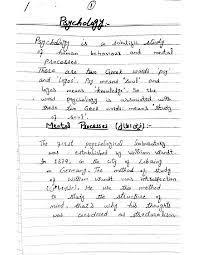 1
Psychology:-
Psychology is a scientific study
of human behaviour and mental
Processes.
These are two Greek words
and 'logos'. Psy means 'soul' and
logos means 'knowledge'. So the
word psychology is
these two Greek words means study
of
Mental Processes
The first psychological laboratory
was established by William Wundt
in 1879 in the city of
in Germany. The method of study
of William Wundt was introspection
He use this method
to study the structure of
mind, that's why his thoughts
was considered as structuralism